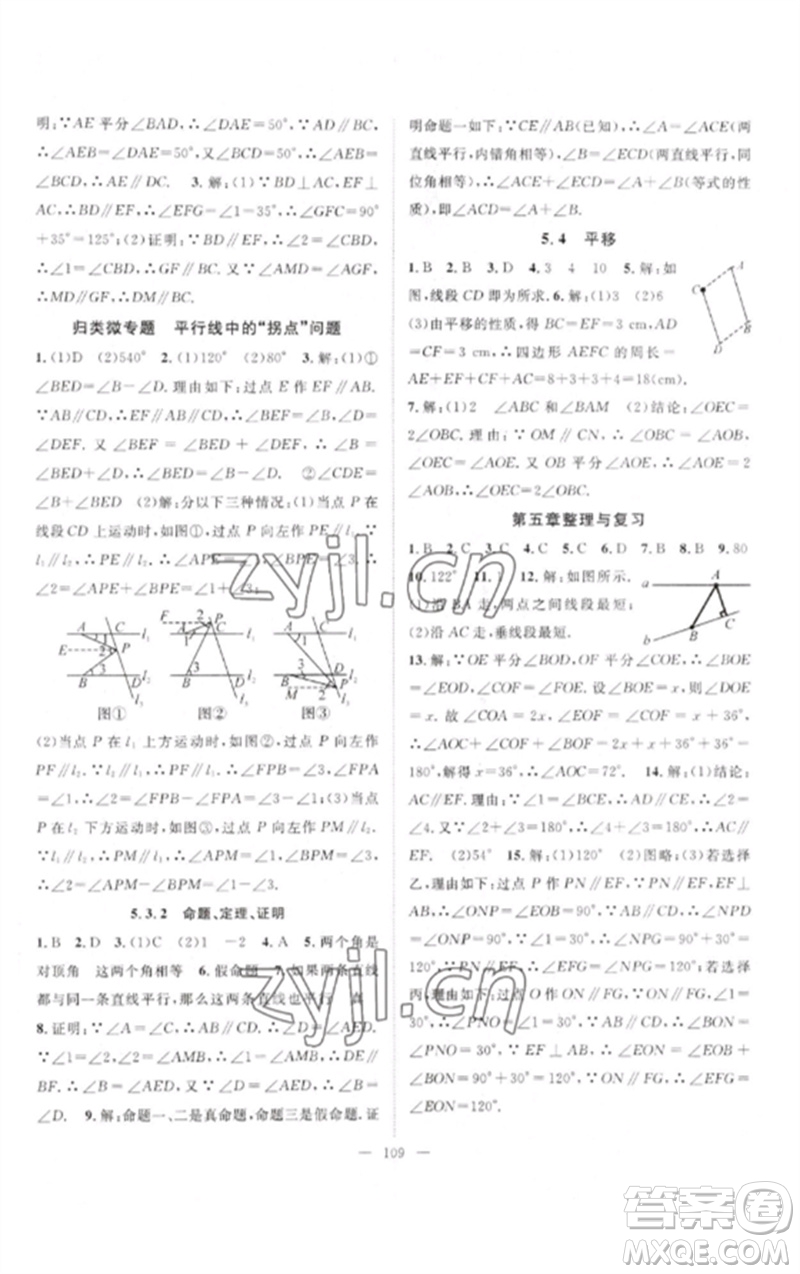 明:∵AE平分∠BAD,∴∠DAE=50°,∵AD∥BC,∴
∠AEB=∠DAE=50°,又∠BCD=50°,∴∠AEB=
∠BCD,∴AE∥DC. 3.解:(1)∵BD∥GF,EF⊥
AC,∴BD∥EF,∴∠EFG=∠1=35°,∴∠GFC=90°
+35°=125°;(2)证明:∵BD∥GF,∴∠2=∠CBD,∴
∠1=∠CBD,∴GF∥BC.又∵∠AMD=∠AGF,∴
MD∥GF,∴MD∥BC.
归类微专题 平行线中的“拐点”问题
1.(1)D (2)540° 2.(1)120° (2)80° 3.解:(1)①
∠BED=∠B+∠D.理由如下:过点E作EF∥AB.
∵AB∥CD,∴EF∥CD.∴∠BEF=∠B,∠D=
∠DEF.又∠BEF+∠DEF=∠BED,∴∠BED=
∠B+∠D (2)解:分以下三种情况:①当点P在
线段CD上运动时,如图①,过点P向左作PE∥l₁.∵
∠2=∠APE+∠BPE=∠1+∠3;
A C l₁ E P B D l₂ l₃ 图①
F P A C l₁ B D l₂ 图②
A C l₁ B D l₂ M P 图③
(2)当点P在l₁上方运动时,如图②,过点P向左作
PF∥l₁.∵l₁∥l₂,∴PF∥l₂,∴∠FPB=∠3,∠FPA
=∠1,∴∠2=∠FPB-∠FPA=∠3-∠1;(3)当点
P在l₂下方运动时,如图③,过点P向左作PM∥l₂.∵
l₁∥l₂,∴PM∥l₁,∴∠APM=∠1,∠BPM=∠3,
∴∠2=∠APM-∠BPM=∠1-∠3.
5.3.2 命题、定理、证明
1.B 2.D 3.(1)C (2)1 -2 4.A 5.两个角是
对顶角 这两个角相等 6.假命题 7.如果两条直线
都与同一条直线平行,那么这两条直线也平行 真
8.证明:∵∠A=∠C,∴AB∥CD,∴∠B=∠D.又
∵∠1=∠2,∠1=∠AMB,∴∠2=∠AMB,∴
∠AED=∠AMB,又∵∠D=∠AED,∴∠B=
∠D. 9.解:命题一、二是真命题,命题三是假命题.证
明命题一如下:∵CE∥AB(已知),∴∠A=∠ACE(两
直线平行,内错角相等),∠B=∠ECD(两直线平行,同
位角相等),∴∠A+∠B=∠ACE+∠ECD(等式的性
质),∴∠ACD=∠A+∠B.
5.4 平移
1.B 2.B 3.D 4.3 4 10 5.解:如
图,线段CD即为所求. 6.(1)2 (2)6
(3)由平移的性质,得BE=AD=3 cm,
AD=CF=3 cm,∴四边形AEFC的周长=
AE+EF+CF+AC=8+3+3+4=18(cm).
C A D B
7.解:(1)2 ∠ABC和∠BAM (2)结论:∠OEC=
2∠OBC.理由:∵OM∥CN,∴∠OBC=∠AOB,
∠OEC=∠AOE.又OB平分∠AOE,∴∠AOE=
2∠AOB,∴∠OEC=2∠OBC.
第五章整理与复习
1.B 2.C 3.C 4.C 5.C 6.D 7.B 8.B 9.80
10.122° 11.1 12.解:如图所示.
(1)沿BA走,两点之间线段最短;
(2)沿AC走,垂线段最短.
a A b B C
13.解:∵OE平分∠BOD,OF平分∠COE,∴∠BOE
=∠DOE,∠COF=∠EOF.根据题意,设∠BOE=
∠DOE=x.故∠COA=2x,∠EOF=∠COF=x+36°,
∴∠AOC+∠COF+∠BOF=2x+x+36°+36°=
180°,解得x=36°,∴∠AOC=72°. 14.(1)结论:
AC∥EF.理由:∵∠1=∠BCE,∴AD∥CE,∴∠2=
∠4.又∵∠2+∠3=180°,∴∠4+∠3=180°,∴AC∥
EF. (2)54° 15.解:(1)60° (2)图略;(3)若选择
乙,理由如下:过点P作PN∥EF,∵PN∥EF,EF⊥
AB,∴∠ONP=∠EOB=90°,∵AB∥CD,∴∠NPD
=∠ONP=90°,∵∠1=30°,∴∠NPG=90°+30°=
120°,∵PN∥EF,∴∠EFG=∠NPG=120°.若选择
丙,理由如下:过点O作ON∥FG,∵AB∥CD,∠1=
30°,∴∠PNO=30°,∵ON∥FG,∴∠BON=
∠PNO=30°,∵EF⊥AB,∴∠EON=∠EOB+
∠BON=90°+30°=120°,∵ON∥FG,∴∠EFG=
∠EON=120°.
— 109 —
zyjl.cn
zyjl.cn
答案卷
MXQE.COM